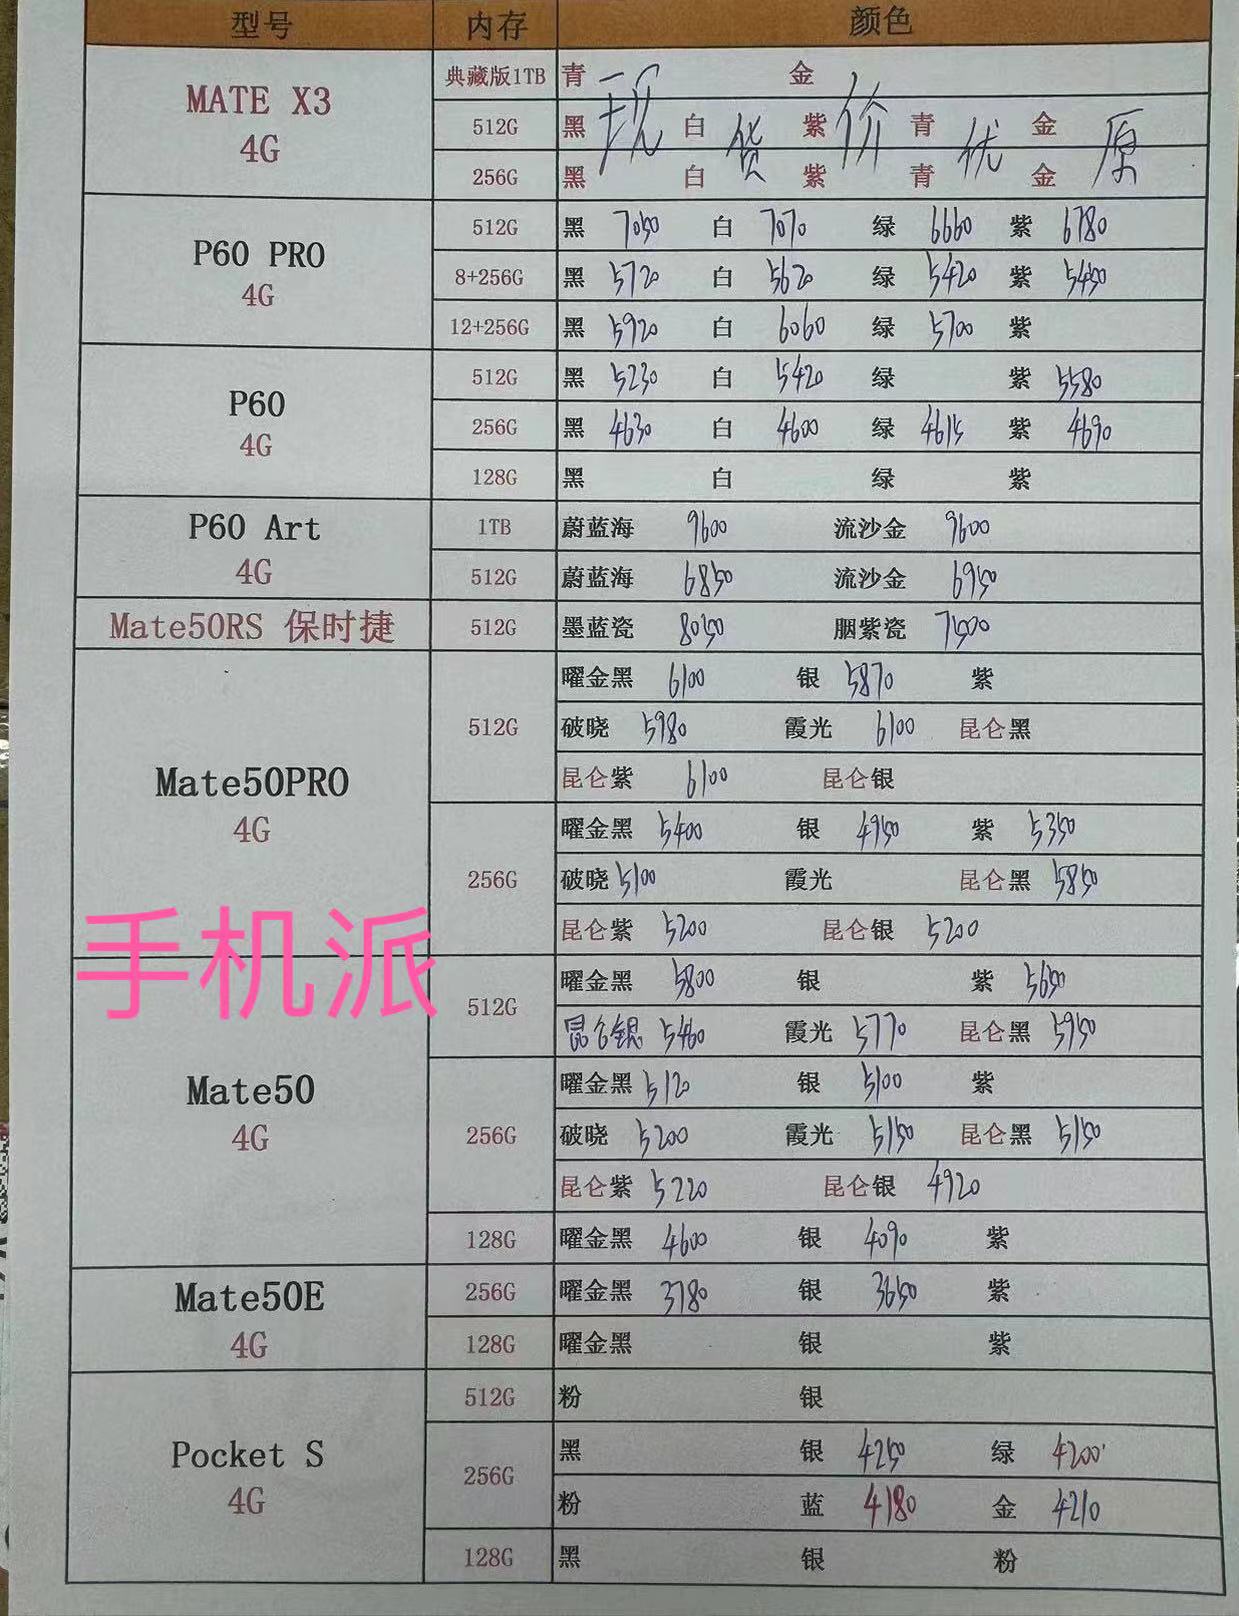 型号 内存 颜色
MATE X3 4G
典藏版1TB 青 金
512G 黑 白 紫 青 金
256G 黑 白 紫 青 金
现 货 价 优 原
P60 PRO 4G
512G 黑 7050 白 7070 绿 6660 紫 6780
8+256G 黑 5720 白 5620 绿 5420 紫 5450
12+256G 黑 5920 白 6060 绿 5700 紫
P60 4G
512G 黑 5230 白 5420 绿 紫 5580
256G 黑 4630 白 4600 绿 4615 紫 4690
128G 黑 白 绿 紫
P60 Art 4G
1TB 蔚蓝海 9600 流沙金 9600
512G 蔚蓝海 6850 流沙金 6950
Mate50RS 保时捷 512G 墨蓝瓷 8050 胭紫瓷 7500
Mate50PRO 4G
512G 曜金黑 6100 银 5870 紫
破晓 5980 霞光 6100 昆仑黑
昆仑紫 6100 昆仑银
256G 曜金黑 5400 银 4950 紫 5350
破晓 5100 霞光 昆仑黑 5850
昆仑紫 5200 昆仑银 5200
手机派
Mate50 4G
512G 曜金黑 5800 银 紫 5650
昆仑银 5460 霞光 5770 昆仑黑 5950
256G 曜金黑 5120 银 5100 紫
破晓 5200 霞光 5150 昆仑黑 5150
昆仑紫 5220 昆仑银 4920
128G 曜金黑 4600 银 4090 紫
Mate50E 4G
256G 曜金黑 3780 银 3650 紫
128G 曜金黑 银 紫
Pocket S 4G
512G 粉 银
256G 黑 银 4250 绿 4200
粉 蓝 4180 金 4210
128G 黑 银 粉